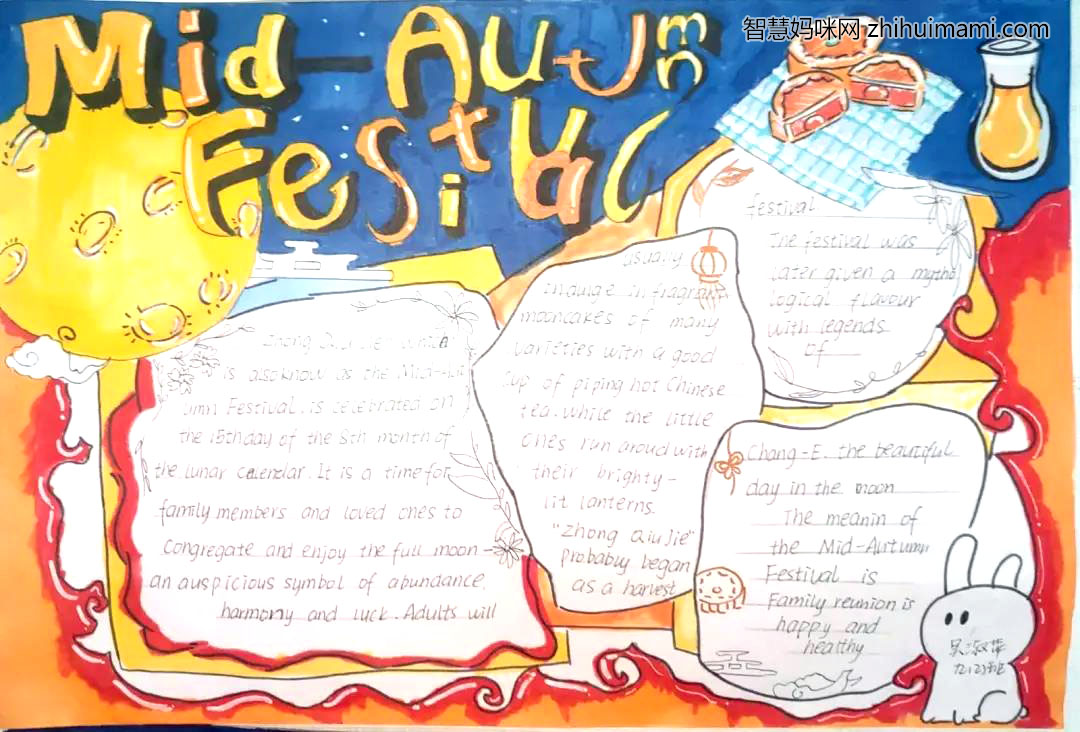 智慧妈咪网 zhihuimami.com
Mid-Autumn
Festival
Zhong Qiu Jie. which
is also know as the Mid-Au
umn Festival. is celebrated on
the 15thday of the 8th month of
the lunar calendar. It is a time for
family members and loved ones to
congregate and enjoy the full moon-
an auspicious symbol of abundance.
harmony and luck. Adults will
usually
indulge in fragrant
mooncakes of many
varieties with a good
cup of piping hot Chinese
tea. while the little
ones run aroud with
their brighty-
lit lanterns.
"zhong Qiu Jie"
probably began
as a harvest
festival
The festival was
later given a mytho
logical flavour
with legends
of
Chang-E. the beautiful
day in the moon
The meanin of
the Mid-Autumn
Festival is
Family reunion is
happy and
healthy